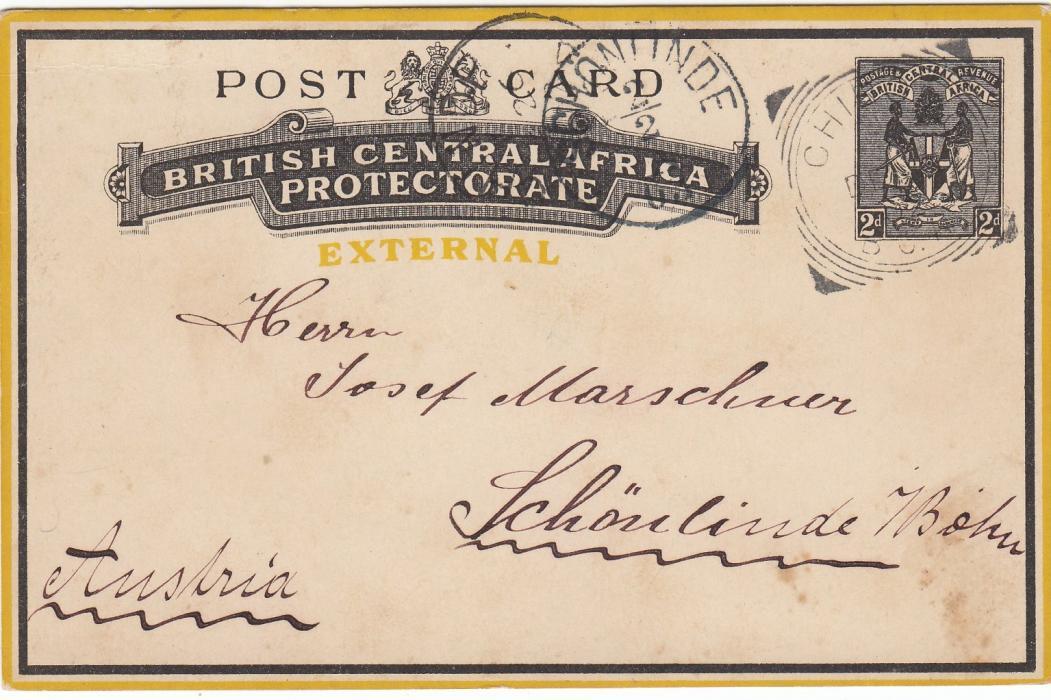 POST CARD
BRITISH CENTRAL AFRICA
PROTECTORATE
EXTERNAL
POSTAGE & REVENUE
BRITISH CENTRAL AFRICA
2d 2d
Herrn
Josef Marschner
Schönlinde Böhm
Austria